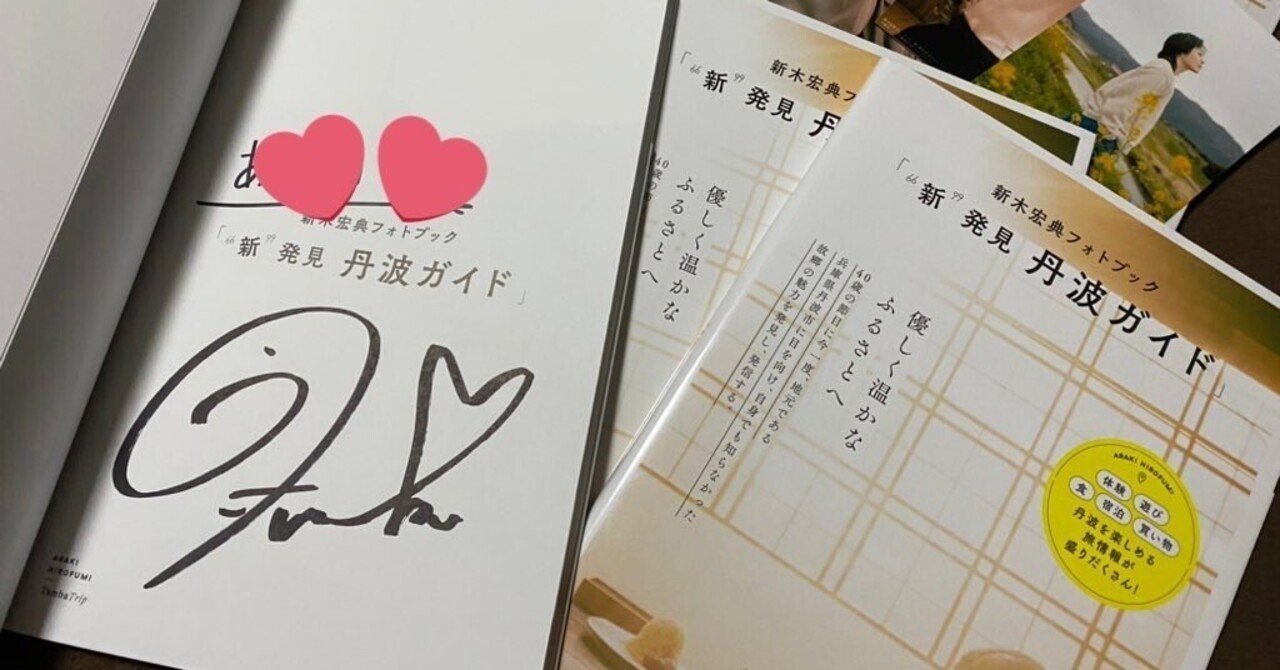 あ
新木宏典フォトブック
「“新”発見 丹波ガイド」
ARAKI
HIROFUMI
TambaTrip
新木宏典フ
「“新”発見 丹
優しく温かな
ふるさとへ
新木宏典フォトブック
「“新”発見 丹波ガイド」
優しく温かな
ふるさとへ
40歳の節目に今一度、地元である
兵庫県丹波市に目を向け、自身でも知らなかった
故郷の魅力を発見し、発信する。
ARAKI HIROFUMI
体験 遊び
食 宿泊 買い物
丹波を楽しめる
旅情報が
盛りだくさん!